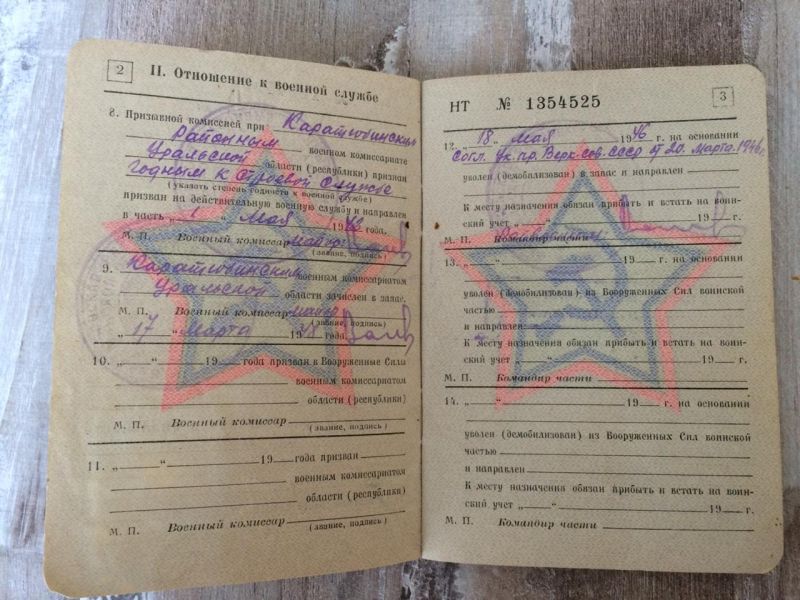 2
II. Отношение к военной службе
8. Призывной комиссией при Каратюбинским
Районным военном комиссариате
Уральской области (республики) признан
годным к строевой службе
(указать степень годности к военной службе)
призван на действительную военную службу и направлен
в часть „1“ Мая 19 года.
М. П. Военный комиссар майор
(звание, подпись)
9. Каратюбинским военным комиссариатом
Уральской области зачислен в запас.
М. П. Военный комиссар майор
(звание, подпись)
„17“ марта 1948 года.
10. „ “ 19 года призван в Вооруженные Силы
военным комиссариатом
области (республики)
М. П. Военный комиссар
(звание, подпись)
11. „ “ 19 года призван
военным комиссариатом
области (республики)
М. П. Военный комиссар
(звание, подпись)
НТ № 1354525
3
12. „18“ мая 1946 г. на основании
Согл. Ук. пр. Верх. сов. СССР от 20. Марта. 1946 г.
уволен (демобилизован) в запас и направлен
К месту назначения обязан прибыть и встать на воин-
ский учет „ “ 19 г.
М. П. Командир части
13. „ “ 19 г. на основании
уволен (демобилизован) из Вооруженных Сил воинской
частью
и направлен
К месту назначения обязан прибыть и встать на воин-
ский учет „ “ 19 г.
М. П. Командир части
14. „ “ 19 г. на основании
уволен (демобилизован) из Вооруженных Сил воинской
частью
и направлен
К месту назначения обязан прибыть и встать на воин-
ский учет „ “ 19 г.
М. П. Командир части